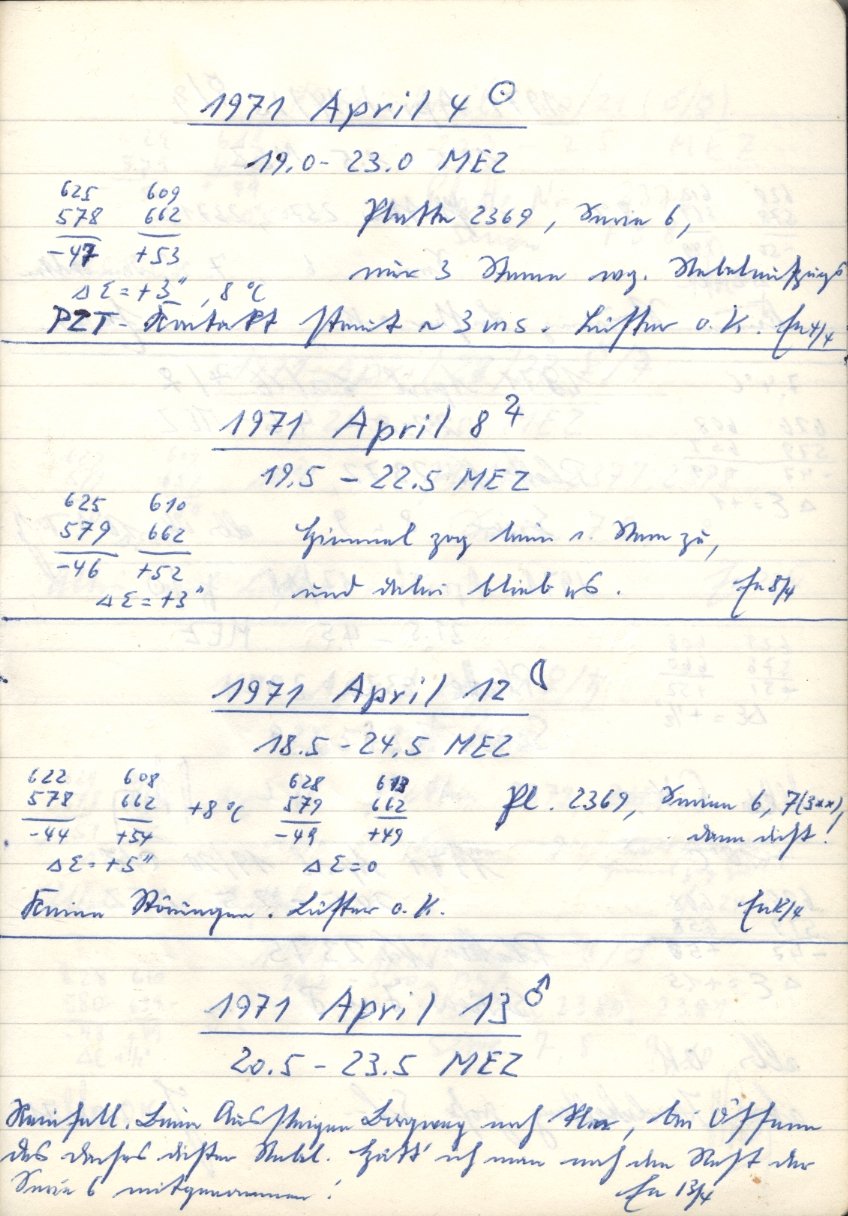 1971 April 4 ☉
19.0 - 23.0 MEZ
625 609
578 662 Platte 2369, Serie 6,
-47 +53
nur 3 Sterne wg. Nebelaufzugs
Δ Σ = +3" , 8 °C
PZT - Kontakt streut ~ 3 ms. Lüfter o. K. En 4/4
1971 April 8 ♃
19.5 - 22.5 MEZ
625 610
579 662 Himmel zog beim 1. Stern zu,
-46 +52
und dabei blieb es. En 8/4
Δ Σ = +3"
1971 April 12 ☾
18.5 - 24.5 MEZ
622 608 628 613
578 662 +8 °C 579 662 Pl. 2369, Serien 6, 7(3xx),
-44 +54 -49 +49 dann dicht!
Δ Σ = +5" Δ Σ = 0
Keine Störungen. Lüfter o. K. En 12/4
1971 April 13 ♂
20.5 - 23.5 MEZ
Reinfall. Beim Aussteigen Bergweg noch klar, bei Öffnen
des Daches dichter Nebel. Hätt' ich man noch den Rest der
Serie 6 mitgenommen! En 13/4